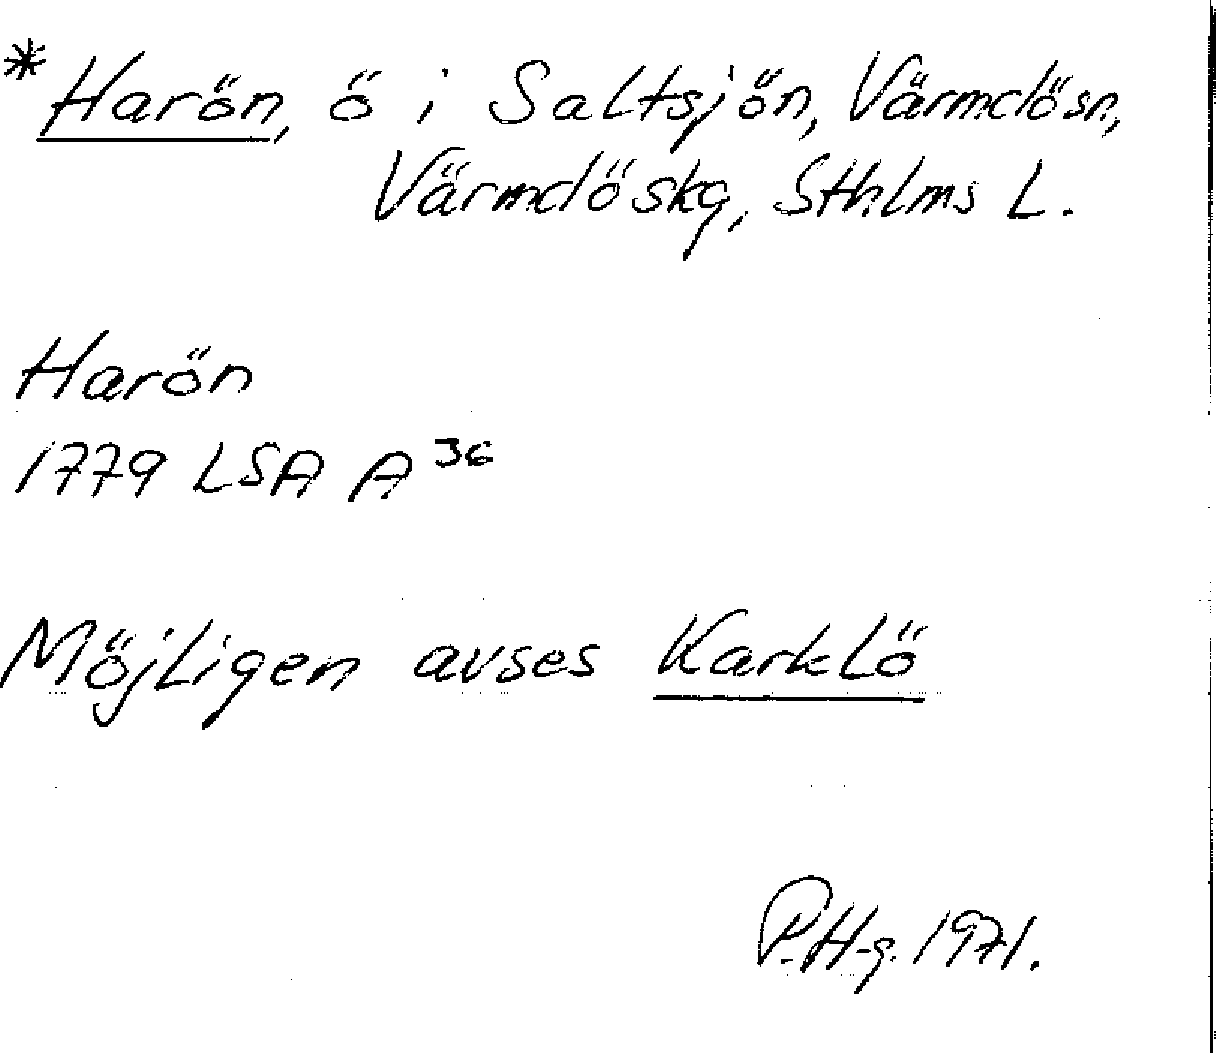 *Harön, ö i Saltsjön, Värmdösn,
Värmdöskg, Sthlms L.
Harön
1779 LSA A³⁶
Möjligen avses Karklö
P.H-g. 1971.